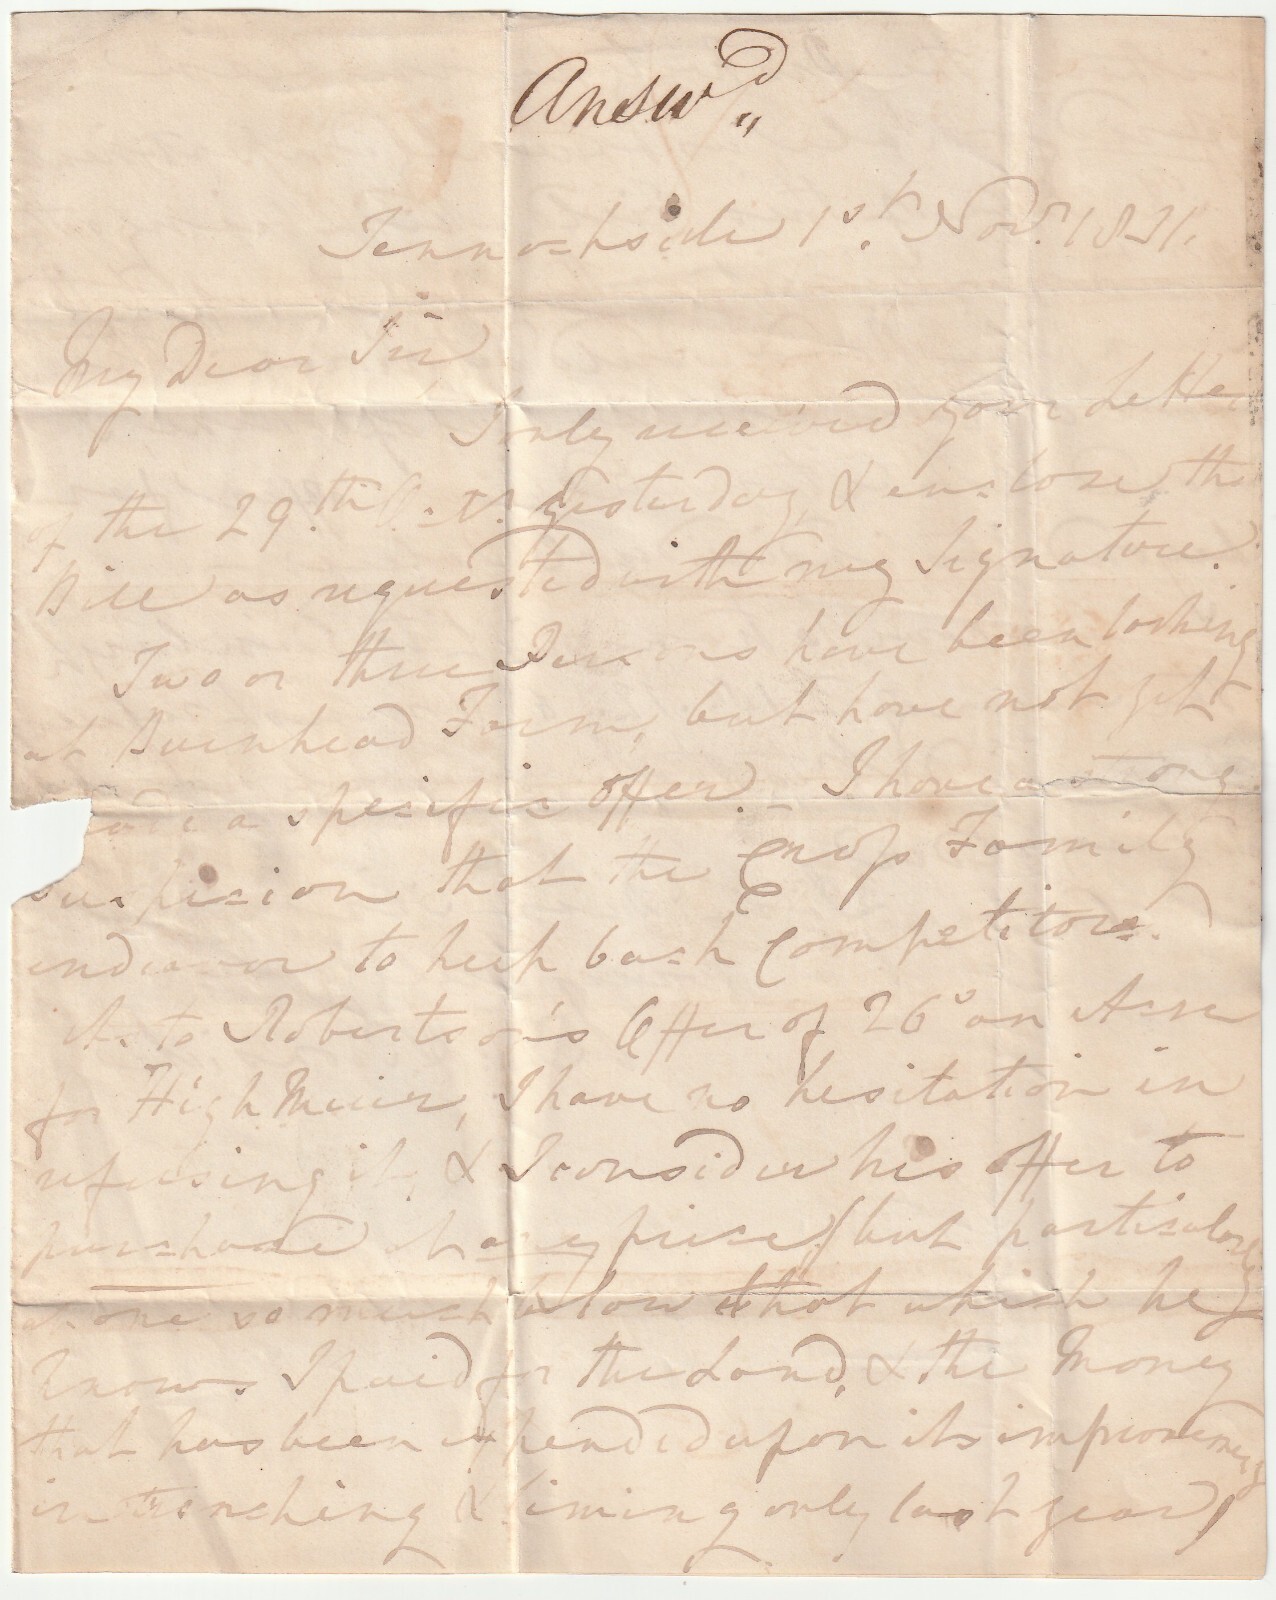 Answd
Tennochside 1st. Novr. 1831.
My Dear Sir
I only received your Letter
of the 29th. Ult. yesterday, & enclose the
Bill as requested with my Signature.
Two or three Persons have been looking
at Burnhead Farm, but have not yet
made a specific offer. I have a strong
suspicion that the Cross Family
endeavor to keep back Competitors.
As to Robertson's Offer of 26s an Acre
for High Muir, I have no hesitation in
refusing it, & I consider his offer to
purchase at any price (but particularly
at one so much below that which he
knows I paid for the Land, & the Money
that has been expended upon its improvement
in trenching & liming only last year)